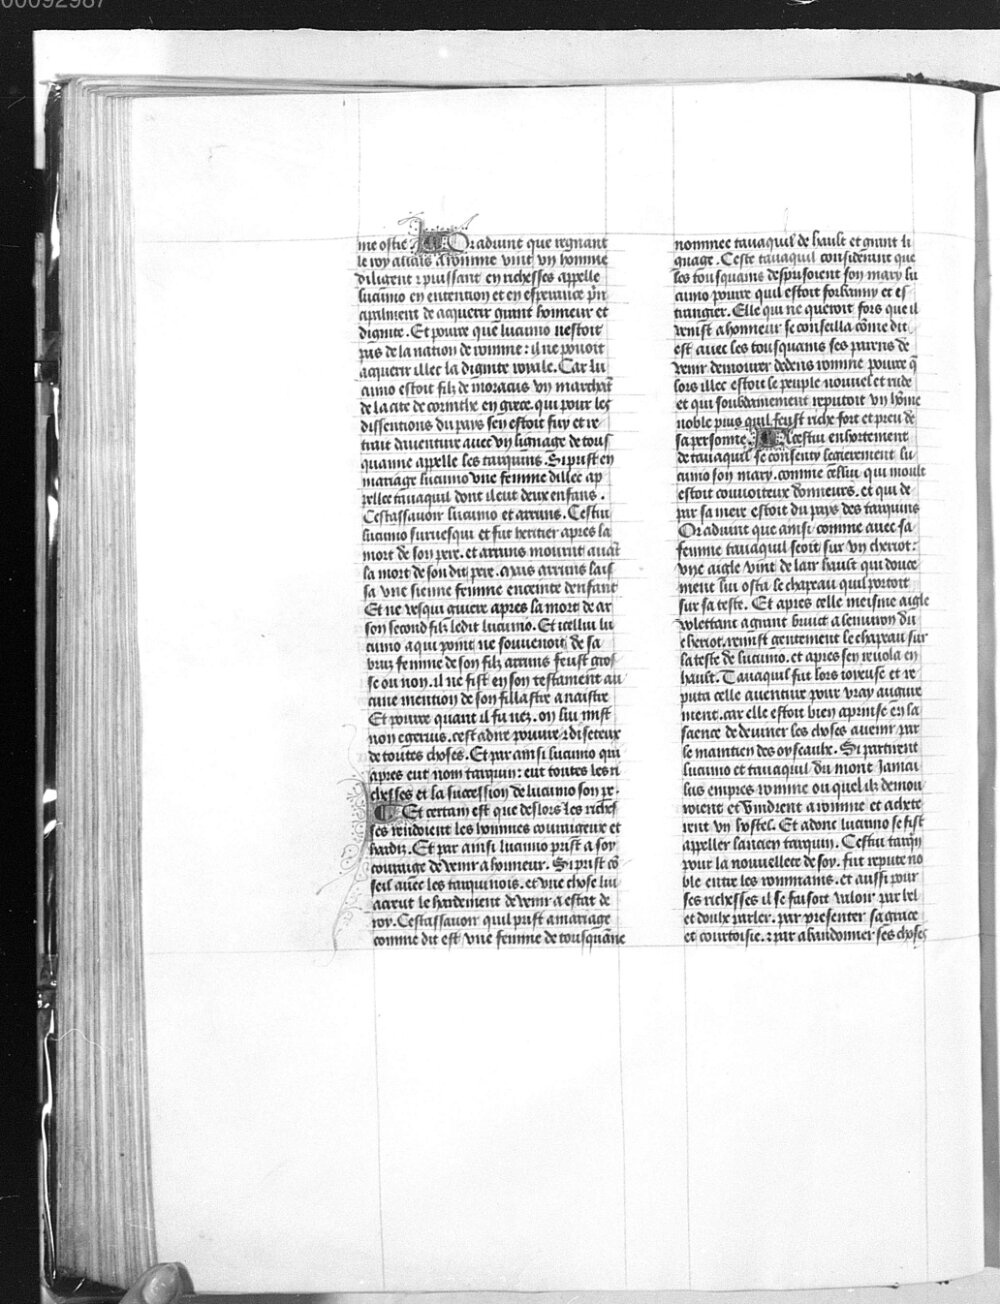 00092987
me ostie Or aduint que regnant
le roy anchus a romme vint vn homme
diligent et puissant en richesses appelle
lucumo en entencion et en esperance prin
cipalment de acquerir grant honneur et
dignite. Et pource que lucumo nestoit
pas de la nation de romme: il ne pouoit
acquerir illec la dignite royale. Car lu
cumo estoit filz de moracus vn marchāt
de la cite de corinthe en grece. qui pour les
dissentions du pays sen estoit fuy et re
trait dauenture auec vn lignage de tous
quanne appelle les tarquins. Si prist en
mariage lucumo vne femme dillec ap
pellee tanaquil dont il eut deux enfans.
Cestassauoir lucumo et arruns. Cestui
lucumo suruesqui et fut heritier apres la
mort de son pere. et arruns mourut auāt
la mort de son dit pere. Mais arruns lais
sa vne sienne femme enceinte denfant
Et ne vesqui guere apres la mort de ar
son second filz ledit lucumo. Et icellui lu
cumo a qui point ne souuenoit de sa
bruz femme de son filz arruns feust gros
se ou non. il ne fist en son testament au
cune mention de son fillastre a naistre
Et pource quant il fu nez. on lui mist
non egerius. cest adire poure et diseteux
de toutes choses. Et par ainsi lucumo qui
apres eut nom tarquin: eut toutes les ri
chesses et la succession de lucumo son pe.
Et certain est que deslors les riches
ses rendoient les hommes courageux et
hardiz. Et par ainsi lucumo prist a soy
courage de venir a honneur. Si prist cō
seil auec les tarquinois. et vne chose lui
accrut le hardement de venir a estat de
roy. Cestassauoir quil prist a mariage
comme dit est vne femme de tousquane
nommee tanaquil de hault et grant li
gnage. Ceste tanaquil considerant que
les tousquains desprisoient son mary lu
cumo pource quil estoit forbanny et es
trangier. Elle qui ne queroit fors que il
venist a honneur se conseilla cōme dit
est auec les tousquains ses parens de
venir demourer dedens romme pource q̄
lors illec estoit le peuple nouuel et rude
et qui soubdainement reputoit vn hōme
noble puis quil feust riche fort et preu de
sa personne. A cestui enhortement
de tanaquil se consenty legierement lu
cumo son mary. comme cellui qui moult
estoit couuoiteux donneurs. et qui de
par sa mere estoit du pays des tarquins
Or aduint que ainsi comme auec sa
femme tanaquil seoit sur vn cheriot:
vne aigle vint de lair hault qui douce
ment lui osta le chapeau quil portoit
sur sa teste. Et apres celle meisme aigle
voletant a grant bruit a lenuiron du
cheriot. remist gentement le chapeau sur
la teste de lucumo. et apres sen reuola en
hault. Tanaquil fut lors ioyeuse et re
puta celle auenture pour vray augure
ment. car elle estoit bien aprinse en la
science de deuiner les choses auenir par
le maintien des oyseaulx. Si partirent
lucumo et tanaquil du mont Janicu
lus empres romme ou quel ilz demou
roient et vindrent a romme et achete
rent vn hostel. Et adonc lucumo se fist
appeller lancien tarquin. Cestui tarquin
pour la nouuellete de soy. fut repute no
ble entre les rommains. et aussi pour
ses richesses il se faisoit valoir par bel
et doulx parler. par presenter sa grace
et courtoisie. et par abandonner ses choses